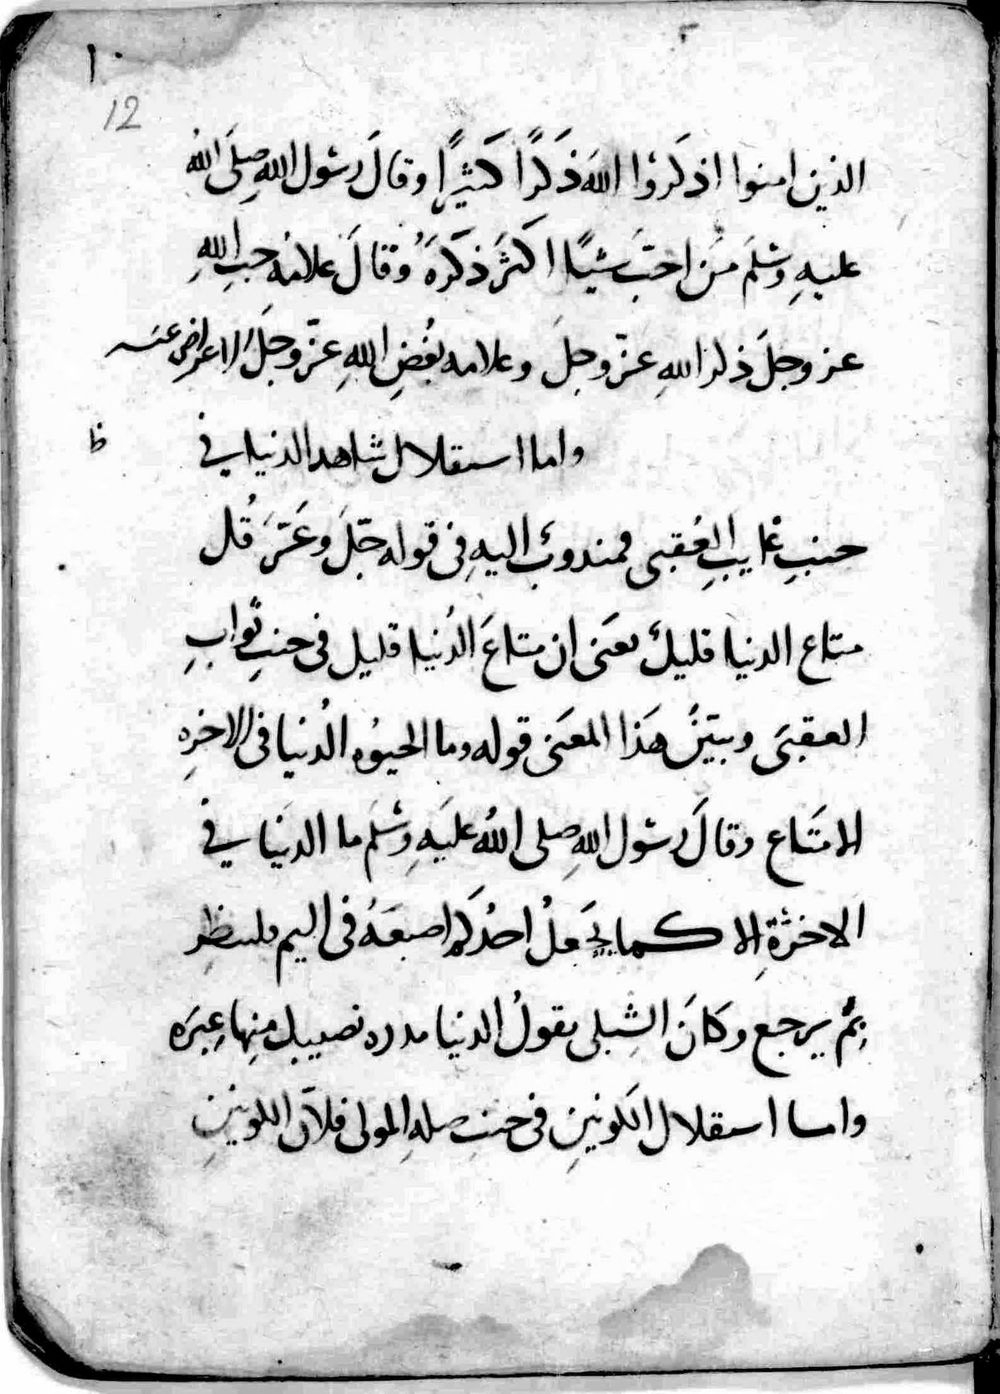 ١٠
12
الذين امنوا اذكروا الله ذكرا كثيرا وقال رسول الله صلى الله
عليه وسلم من احب شيئا اكثر ذكره وقال علامة حب الله
عز وجل ذكر الله عز وجل وعلامه بغض الله عز وجل الاعراض عنه
واما استقلال شاهد الدنيا في
ظ
جنب غايب العقبى فمندوب اليه في قوله جل وعز قل
متاع الدنيا قليل يعنى ان متاع الدنيا قليل فى جنب ثواب
العقبى ويبين هذا المعنى قوله وما الحيوه الدنيا فى الاخره
الا متاع وقال رسول الله صلى الله عليه وسلم ما الدنيا في
الاخرة الا كما يجعل احدكم اصبعه فى اليم فلينظر
بم يرجع وكان الشبلى يقول الدنيا نصيبك منها عبره
واما استقلال الكونين فى جنب صله المولى فلان الكونين